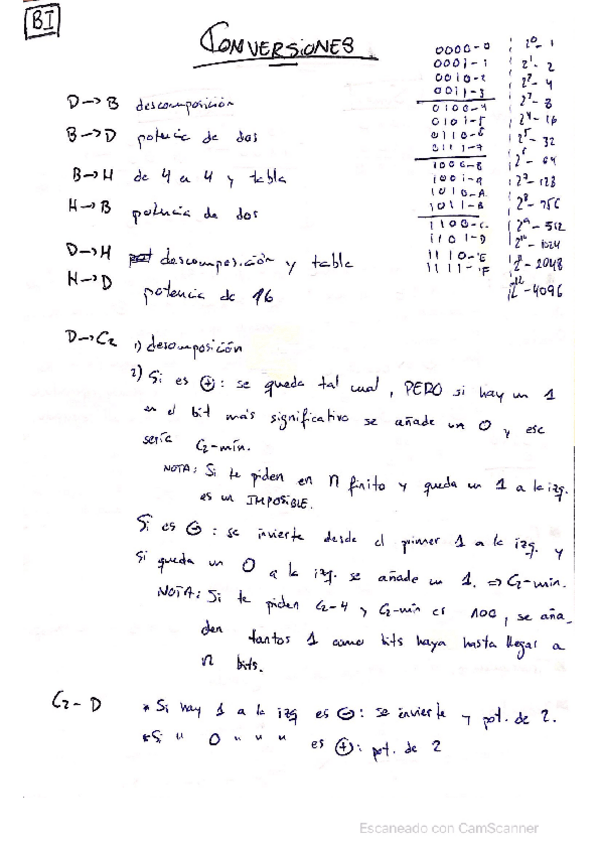 BI
CONVERSIONES
0000-0
0001-1
0010-2
0011-3
0100-4
0101-5
0110-6
0111-7
1000-8
1001-9
1010-A
1011-B
1100-C
1101-D
1110-E
1111-F
2⁰-1
2¹-2
2²-4
2³-8
2⁴-16
2⁵-32
2⁶-64
2⁷-128
2⁸-256
2⁹-512
2¹⁰-1024
2¹¹-2048
2¹²-4096
D→B descomposición
B→D potencia de dos
B→H de 4 a 4 y tabla
H→B potencia de dos
D→H descomposición y tabla
H→D potencia de 16
D→C2 1) descomposición
2) Si es ⊕: se queda tal cual, PERO si hay un 1
en el bit más significativo se añade un 0 y ese
sería C2-mín.
NOTA: Si te piden en n finito y queda un 1 a la izq.
es un IMPOSIBLE.
Si es ⊖: se invierte desde el primer 1 a la izq. y
si queda un 0 a la izq. se añade un 1. ⇒ C2-mín.
NOTA: Si te piden C2-4 y C2-mín es 100, se aña_
den tantos 1 como bits haya hasta llegar a
n bits.
C2-D * Si hay 1 a la izq es ⊖: se invierte y pot. de 2.
* Si " 0 " " " es ⊕: pot. de 2
Escaneado con CamScanner